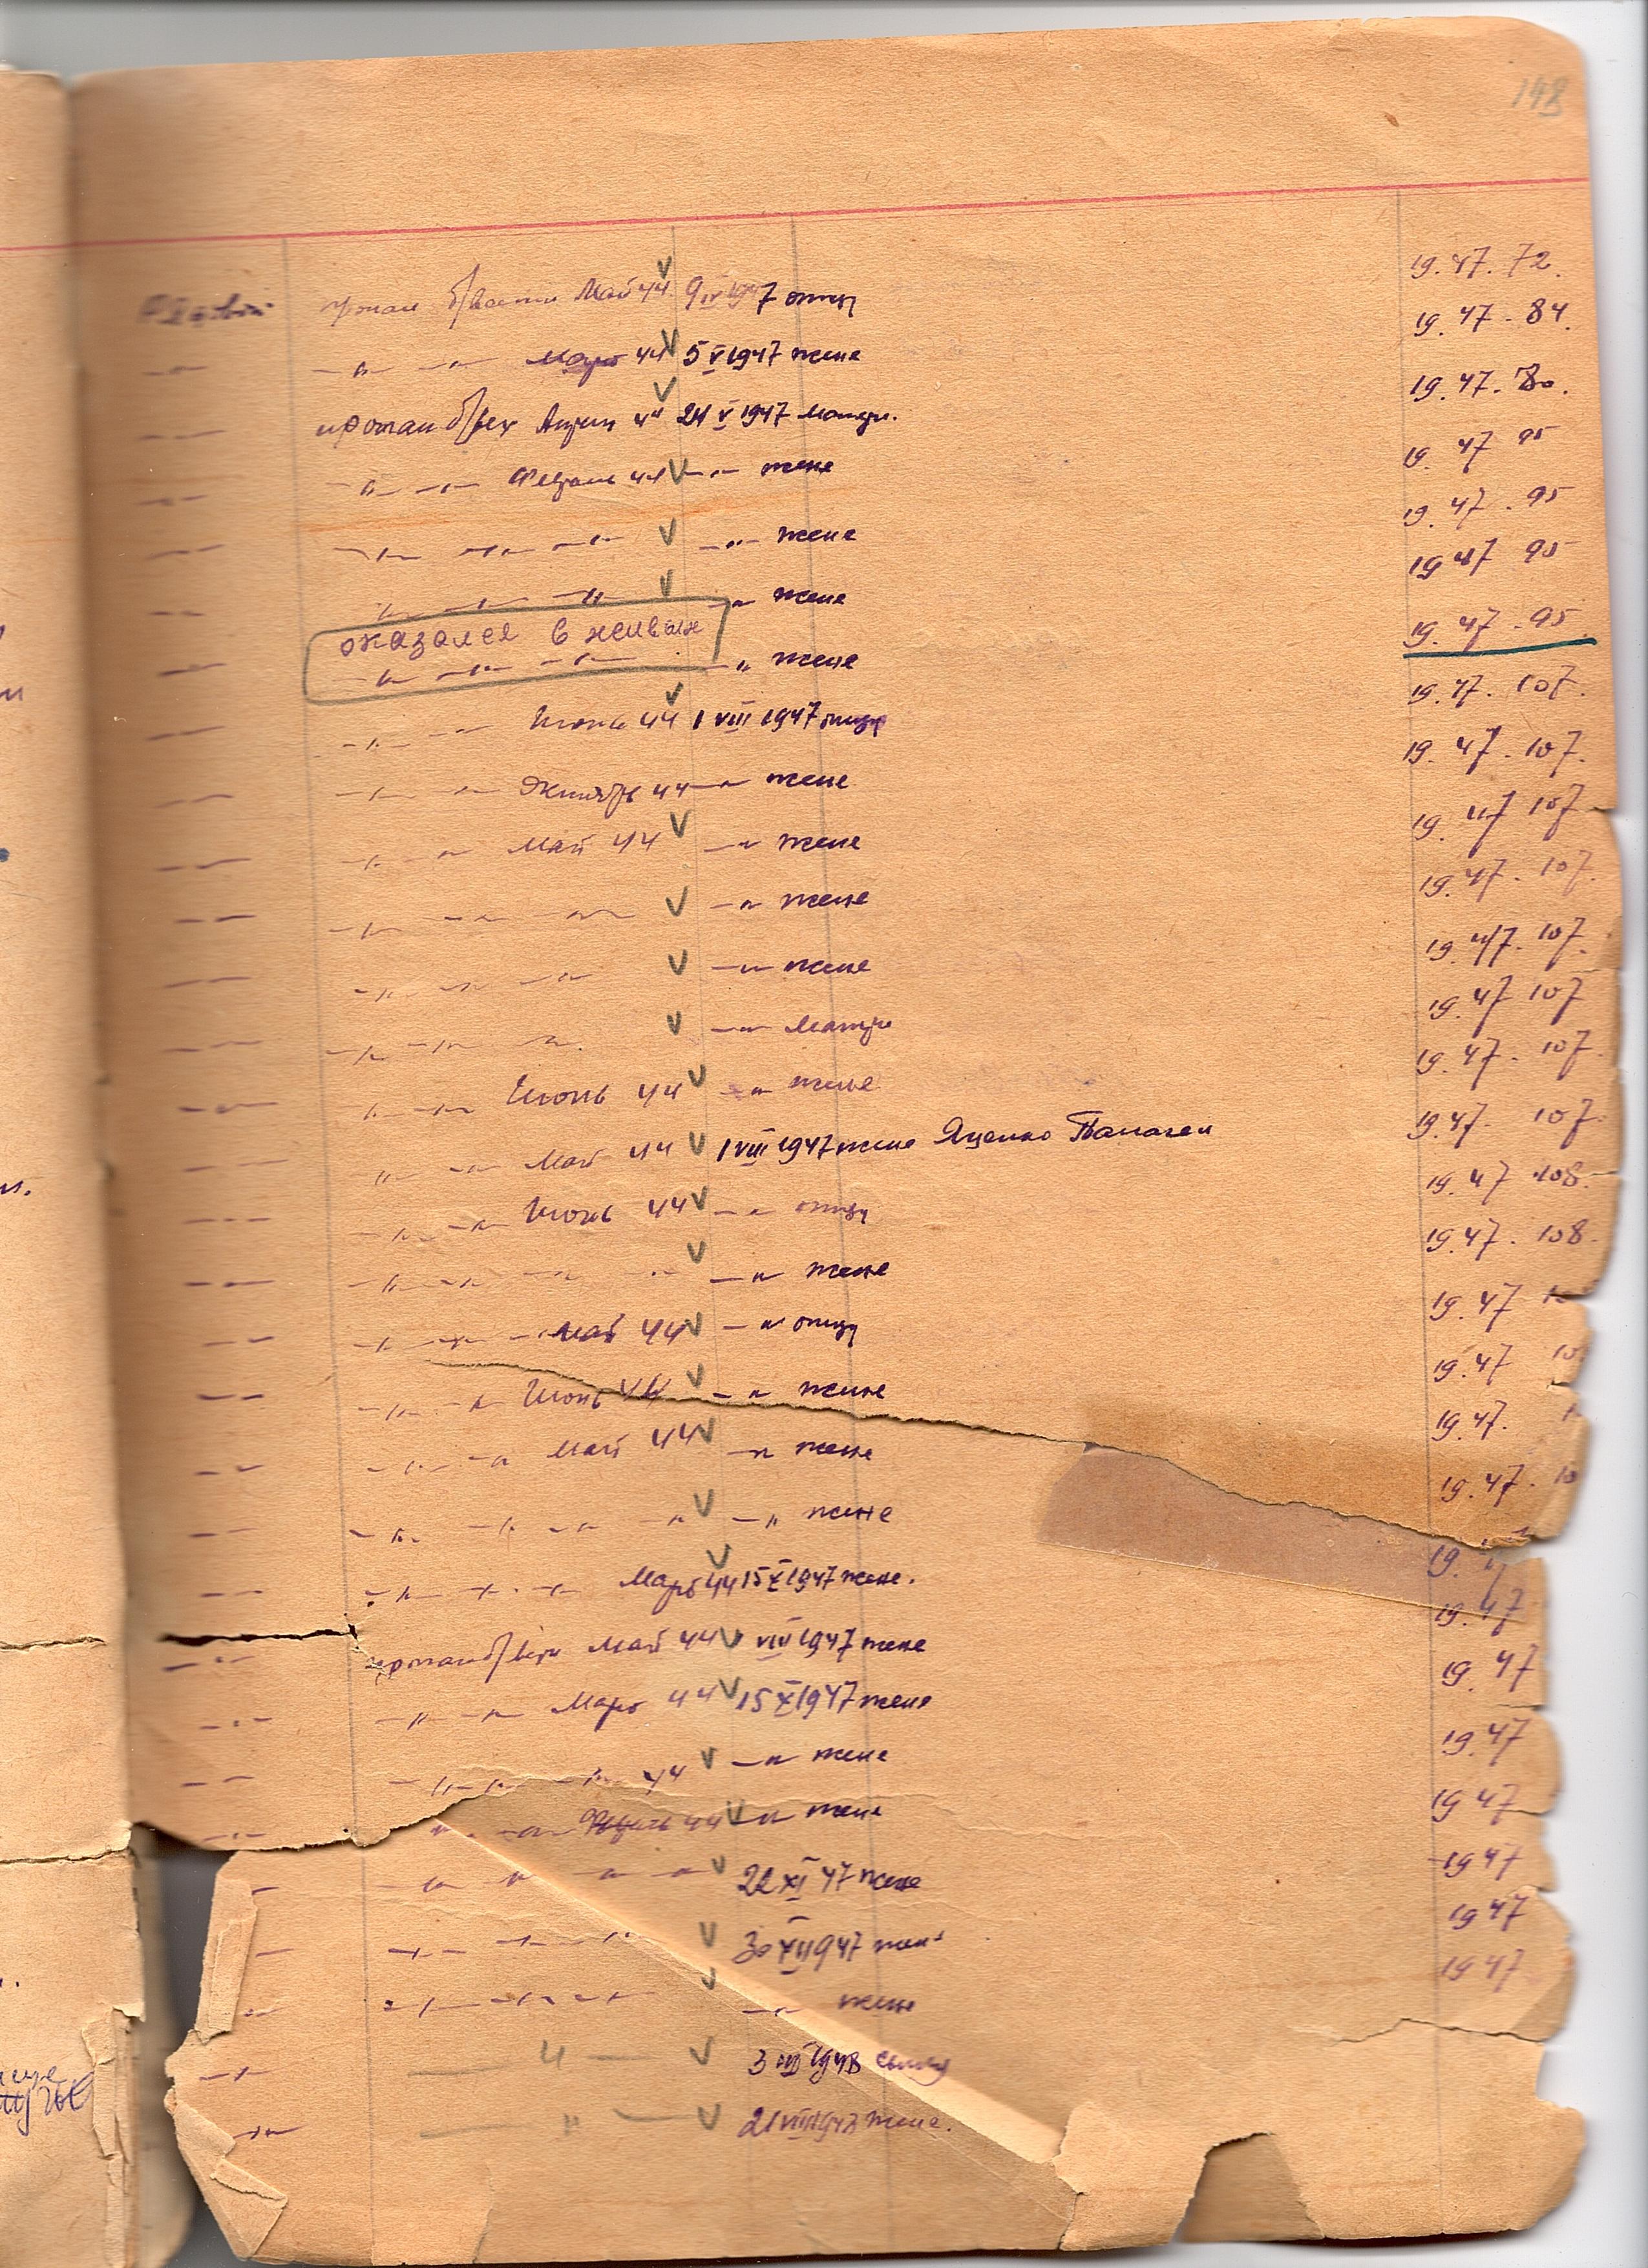 148
Рядовой пропал б/вести Май 44 9 IV 1947 отцу 19. 47. 72.
—"— —"— —"— Март 44 5 V 1947 жене 19. 47 - 84.
—"— пропал б/вех Апрель 44 24 V 1947 матери. 19. 47. 80.
—"— —"— —"— Февраль 44 —"— жене 19. 47 95
—"— —"— —"— —"— —"— жене 19. 47 . 95
—"— —"— —"— —"— —"— жене 19 47 95
оказался в живых
—"— —"— —"— —"— —"— жене 19. 47 - 95
—"— —"— —"— Июнь 44 1 VIII 1947 отцу 19. 47. 107.
—"— —"— —"— Октябрь 44 —"— жене 19. 47. 107.
—"— —"— —"— Май 44 —"— жене 19. 47 107
—"— —"— —"— —"— —"— жене 19. 47. 107.
—"— —"— —"— —"— —"— жене 19. 47. 107.
—"— —"— —"— —"— —"— матери 19. 47 107
—"— —"— —"— Июнь 44 —"— жене 19. 47. 107.
—"— —"— —"— Май 44 1 VIII 1947 жене Яценко 19. 47. 107.
—"— —"— —"— Июнь 44 —"— отцу 19. 47 108.
—"— —"— —"— —"— —"— жене 19. 47. 108.
—"— —"— —"— Май 44 —"— отцу 19. 47
—"— —"— —"— Июнь 44 —"— жене 19. 47 10
—"— —"— —"— Май 44 —"— жене 19. 47.
—"— —"— —"— —"— —"— жене 19. 47. 10
—"— —"— —"— Март 44 15 X 1947 жене. 19. 47
—"— пропал б/вести Май 44 VIII 1947 жене 19. 47
—"— —"— —"— Март 44 15 X 1947 жене 19. 47
—"— —"— —"— —"— 44 —"— жене 19. 47
—"— —"— —"— 44 —"— жене 19 47
—"— —"— —"— —"— 22 XI 47 жене 19 47
—"— —"— —"— —"— 30 XII 1947 жене 19 47
—"— —"— —"— —"— —"— жене 19 47
—"— —"— 3 1948
—"— —"— 21 VIII 1948 жене.